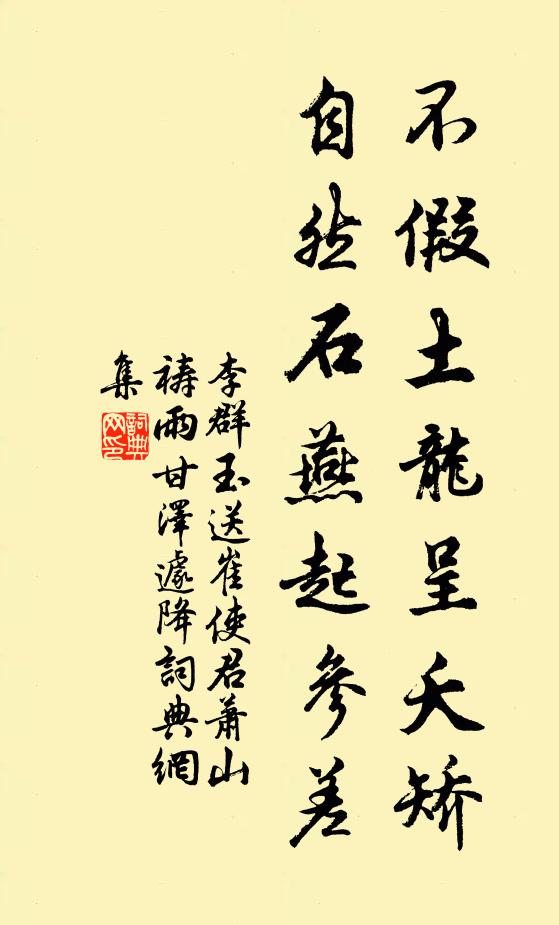 不假土龍呈夭矯
自然石燕起參差
李群玉送崔使君蕭山
禱雨甘澤遽降詞典網
集
詞典
网印